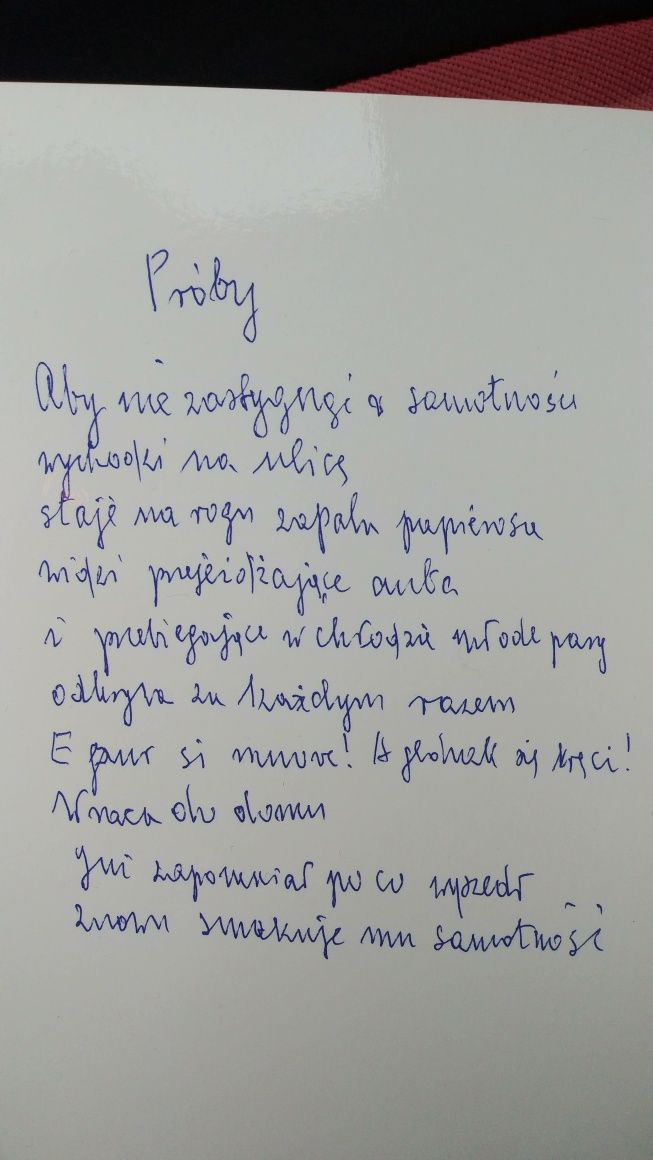 Próby
Aby nie zastygnąć w samotności
wychodzi na ulicę
staje na rogu zapala papierosa
widzi przejeżdżające auta
i przebiegające w chłodzie młode pary
odkrywa za każdym razem
E pur si muove! A jednak się kręci!
Wraca do domu
Już zapomniał po co wyszedł
znowu smakuje mu samotność